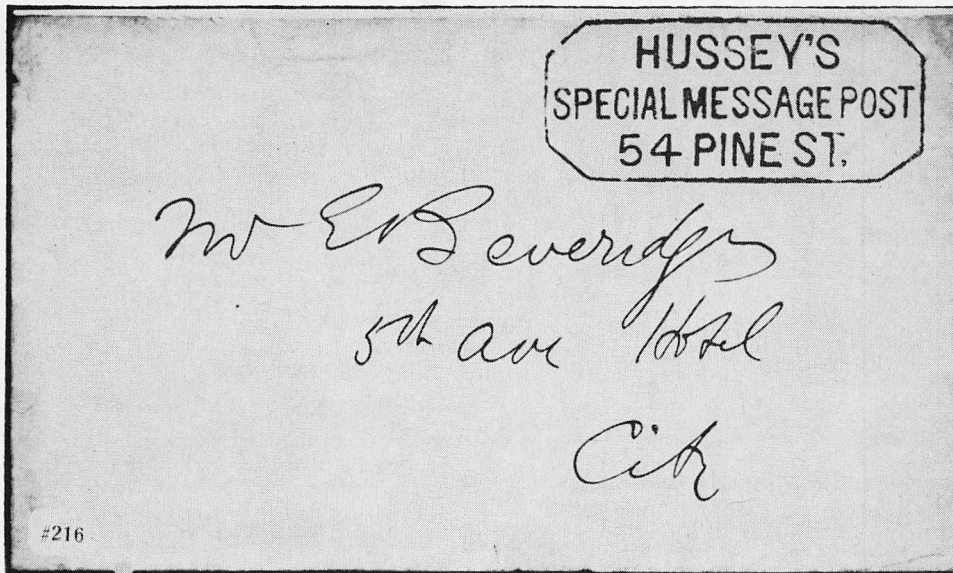 HUSSEY'S
SPECIAL MESSAGE POST
54 PINE ST.
Mr E Beveridge
5th ave Hotel
City
#216